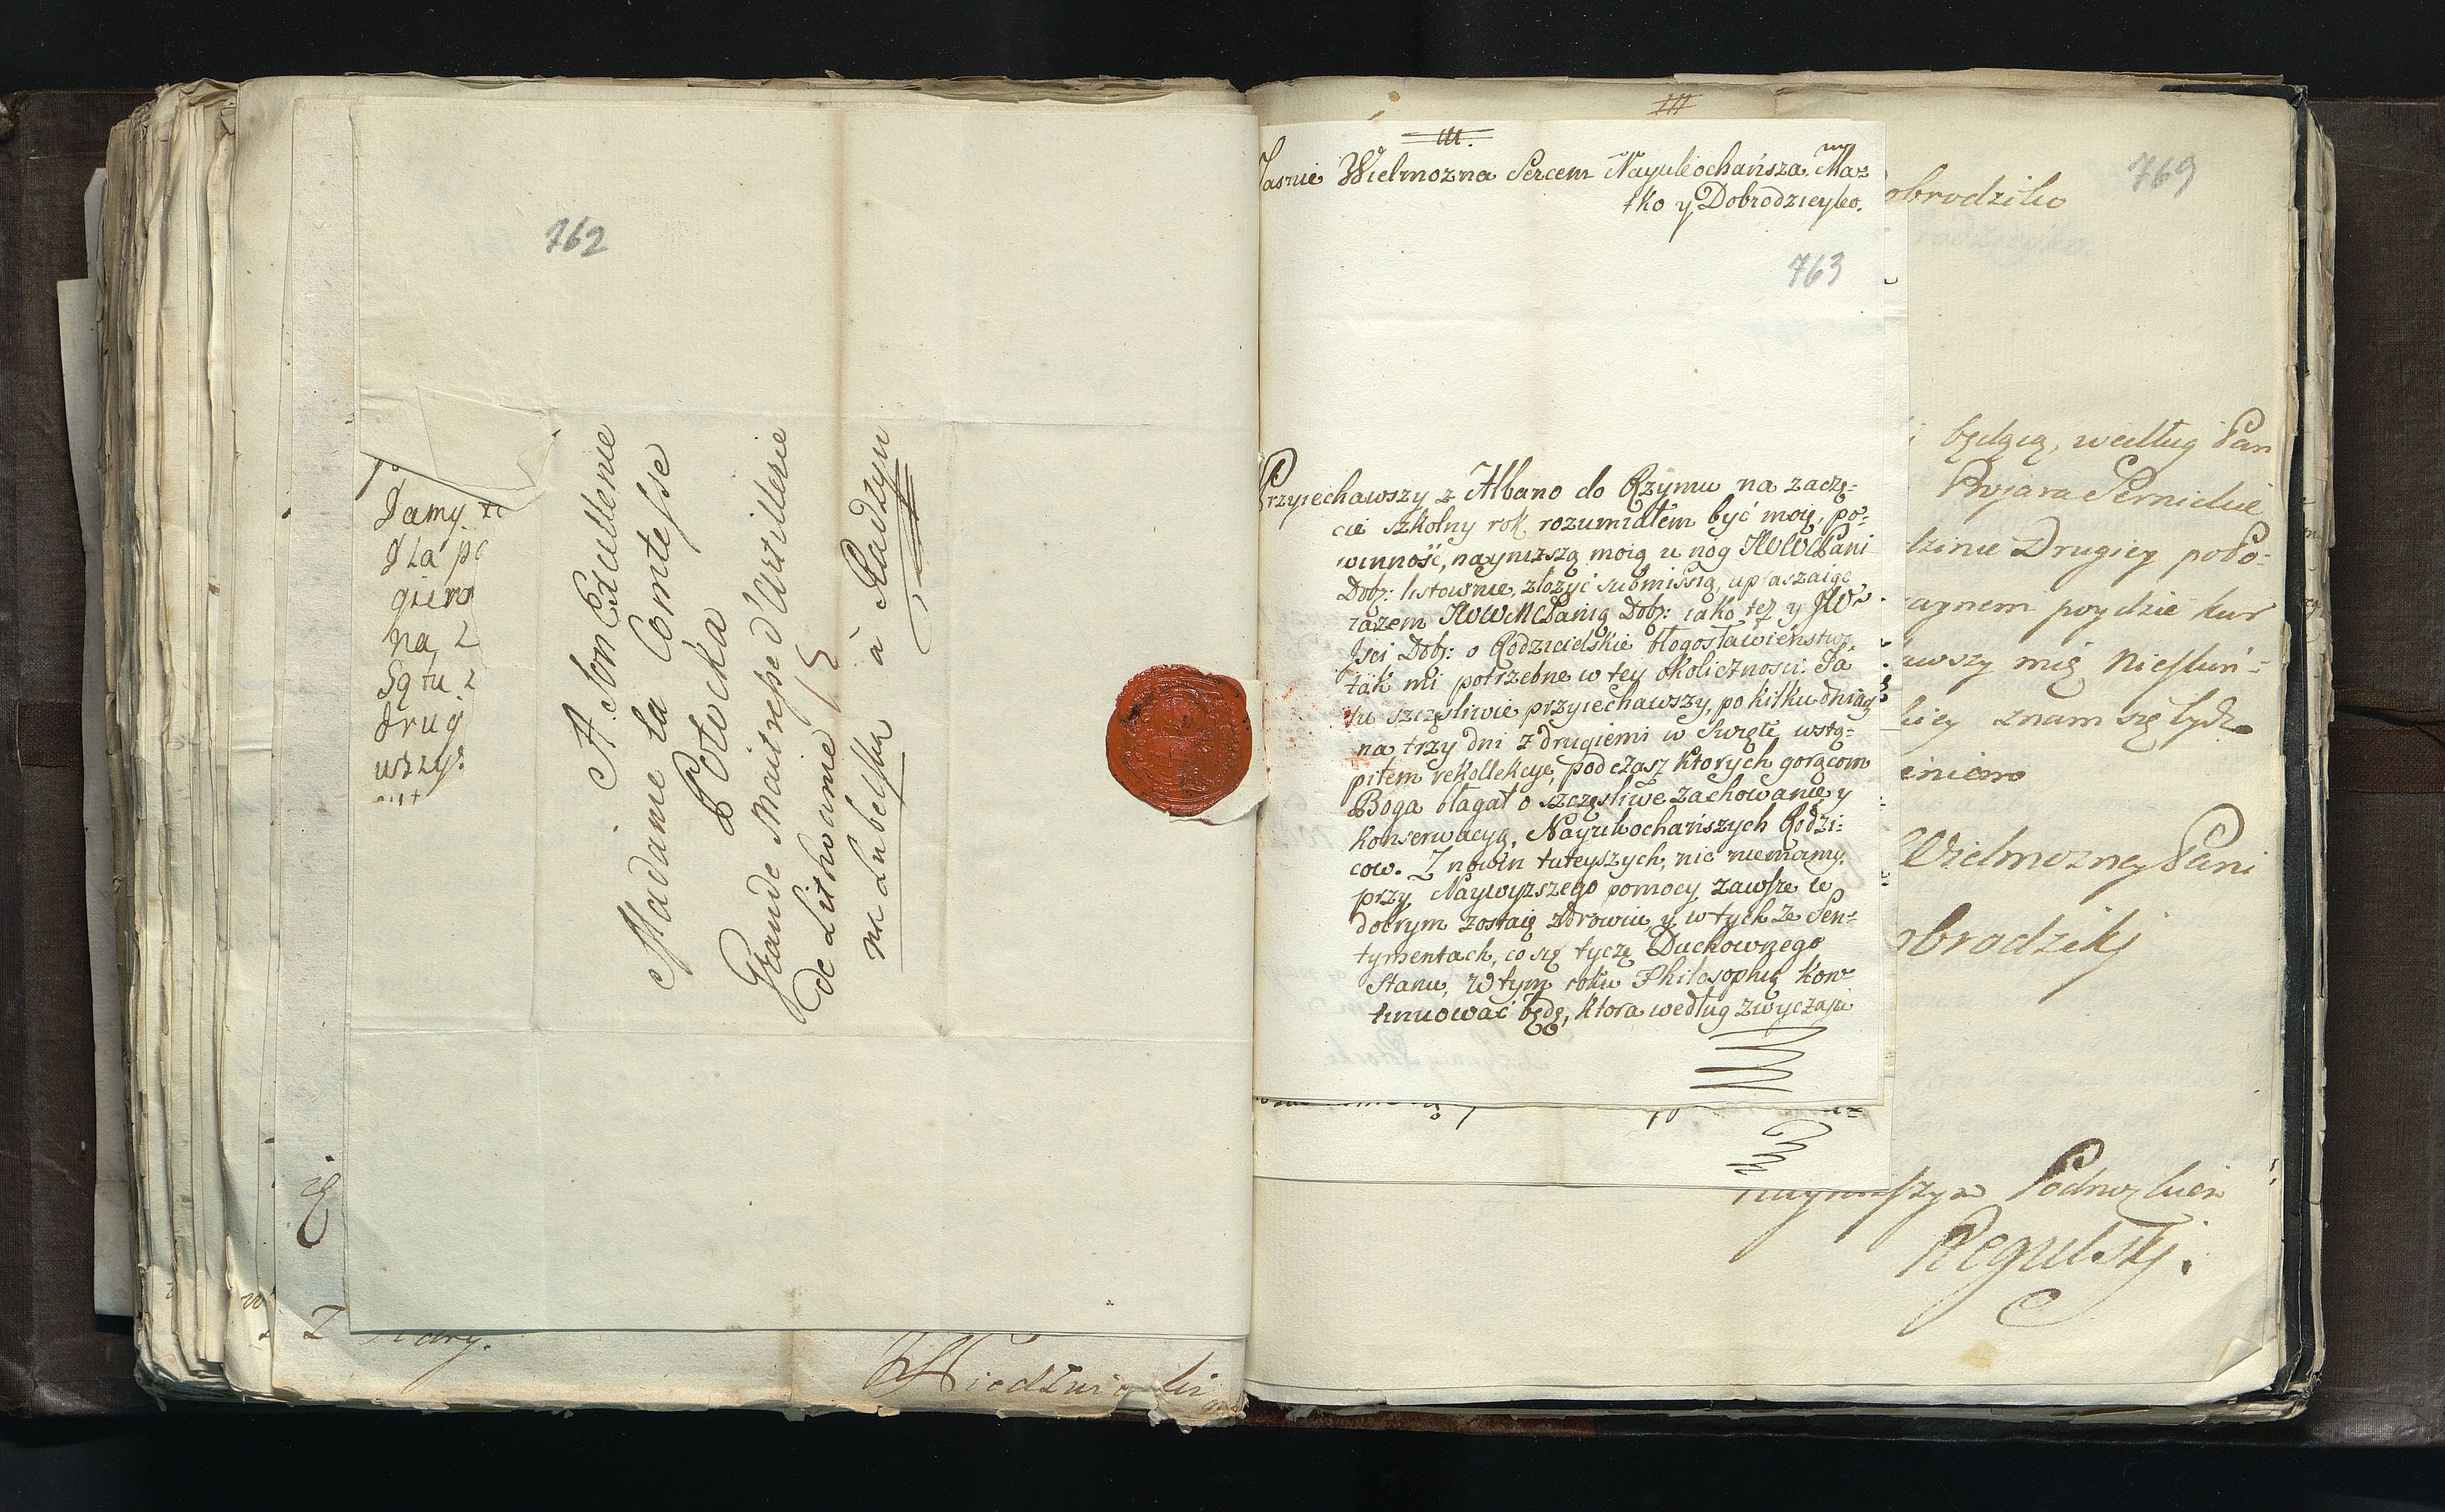 762
A Son Excellence
Madame la Comtesse
Potocka
Grande Maitresse d'Artillerie
de Lithvanie
na Lubelsko à Radzyn
Damy
dla po
giero
na
Są tu
drug
wszys
III.
Jasnie Wielmozna Sercem Nayukochańsza Ma=
tko y Dobrodzieyko.
763
Przyiechawszy z Albano do Rzymu na zaczę=
cie szkolny rok rozumiałem być moię, po=
winność, naynizszą moią u nog JWWMPani
Dob: listownie, złożyć submissią, upraszaiąc
razem JWWMPanią Dob: iako też y JW
Jści Dob: o Rodzicielskie błogosławieństwo
tak mi potrzebne w tey okoliczności. Ja
tu szczęsliwie przyiechawszy, po kilku dniach
na trzy dni z drugiemi w Święte wstą=
piłem rekollekcye, pod czasz ktorych gorącom
Boga błagał o szczęsliwe zachowanie y
konserwacyą, Nayukochańszych Rodzi=
cow. Z nowin tuteyszych, nic niemamy.
przy Naywyzszego pomocy zawsze w
dobrym zostaię zdrowiu, y w tych że Sen=
tymentach, co się tyczę Duchownego
Stanu, W tym roku Philosophią kon=
tinuować będę, ktora według zwyczaju
III
769
obrodziko
będącą, według Pan
dzinie Drugiey po Po=
pojdzie kur
awszy mię
znam się bydz
Wielmozney Pani
obrodziki
Podnozkiem
Regulskj.